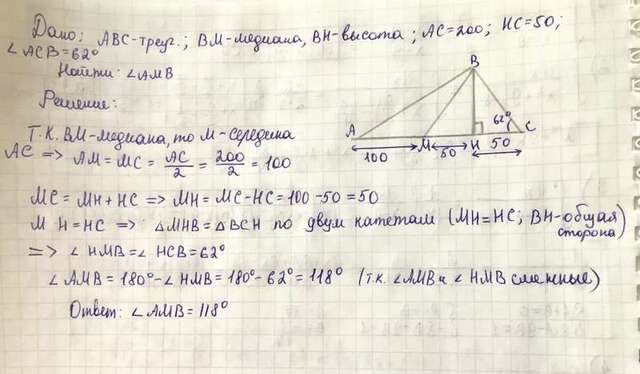 Дано: ABC-треуг.; BM-медиана, BH-высота; AC=200; HC=50;
∠ACB=62°
Найти: ∠AMB
Решение:
Т.К. BM-медиана, то M-середина
AC => AM=MC= AC/2 = 200/2 =100
B
62°
A
M
H
C
100
50
50
MC=MH+HC => MH=MC-HC=100-50=50
MH=HC => △MHB=△BCH по двум катетам (MH=HC; BH-общая
сторона)
=> ∠HMB=∠HCB=62°
∠AMB=180°-∠HMB=180°-62°=118° (т.к. ∠AMB и ∠HMB смежные)
Ответ: ∠AMB=118°